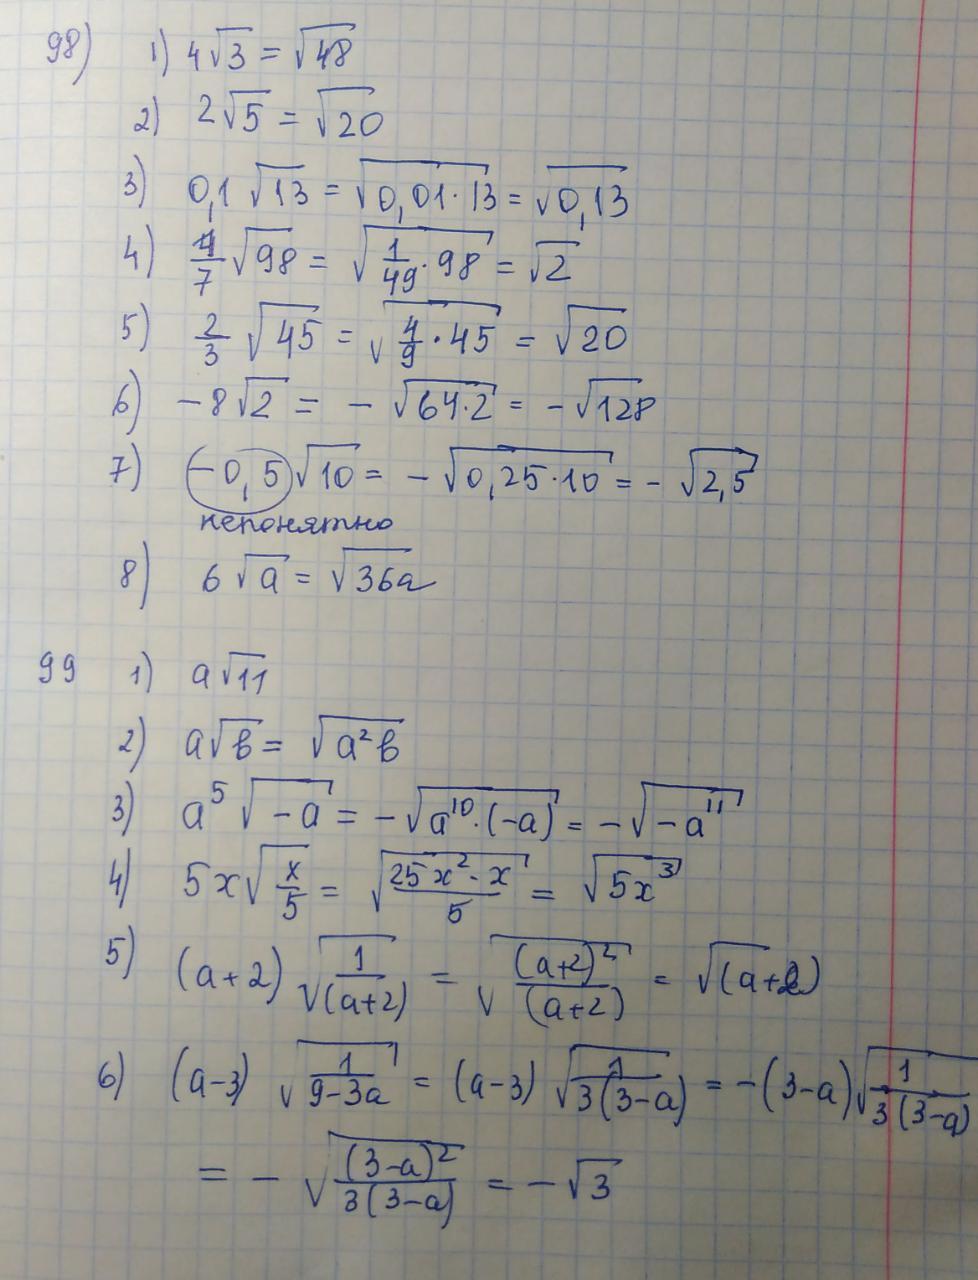 98) 1) 4√3 = √48
2) 2√5 = √20
3) 0,1 √13 = √0,01·13 = √0,13
4) 1/7 √98 = √1/49·98 = √2
5) 2/3 √45 = √4/9·45 = √20
6) -8√2 = -√64·2 = -√128
7) -0,5√10 = -√0,25·10 = -√2,5
непонятно
8) 6√a = √36a
99 1) a√11
2) a√b = √a²b
3) a⁵ √-a = -√a¹⁰·(-a) = -√-a¹¹
4) 5x√x/5 = √25x²·x/5 = √5x³
5) (a+2) √1/(a+2) = √(a+2)²/(a+2) = √(a+2)
6) (a-3) √1/9-3a = (a-3) √1/3(3-a) = -(3-a)√1/3(3-a)
= -√(3-a)²/3(3-a) = -√3